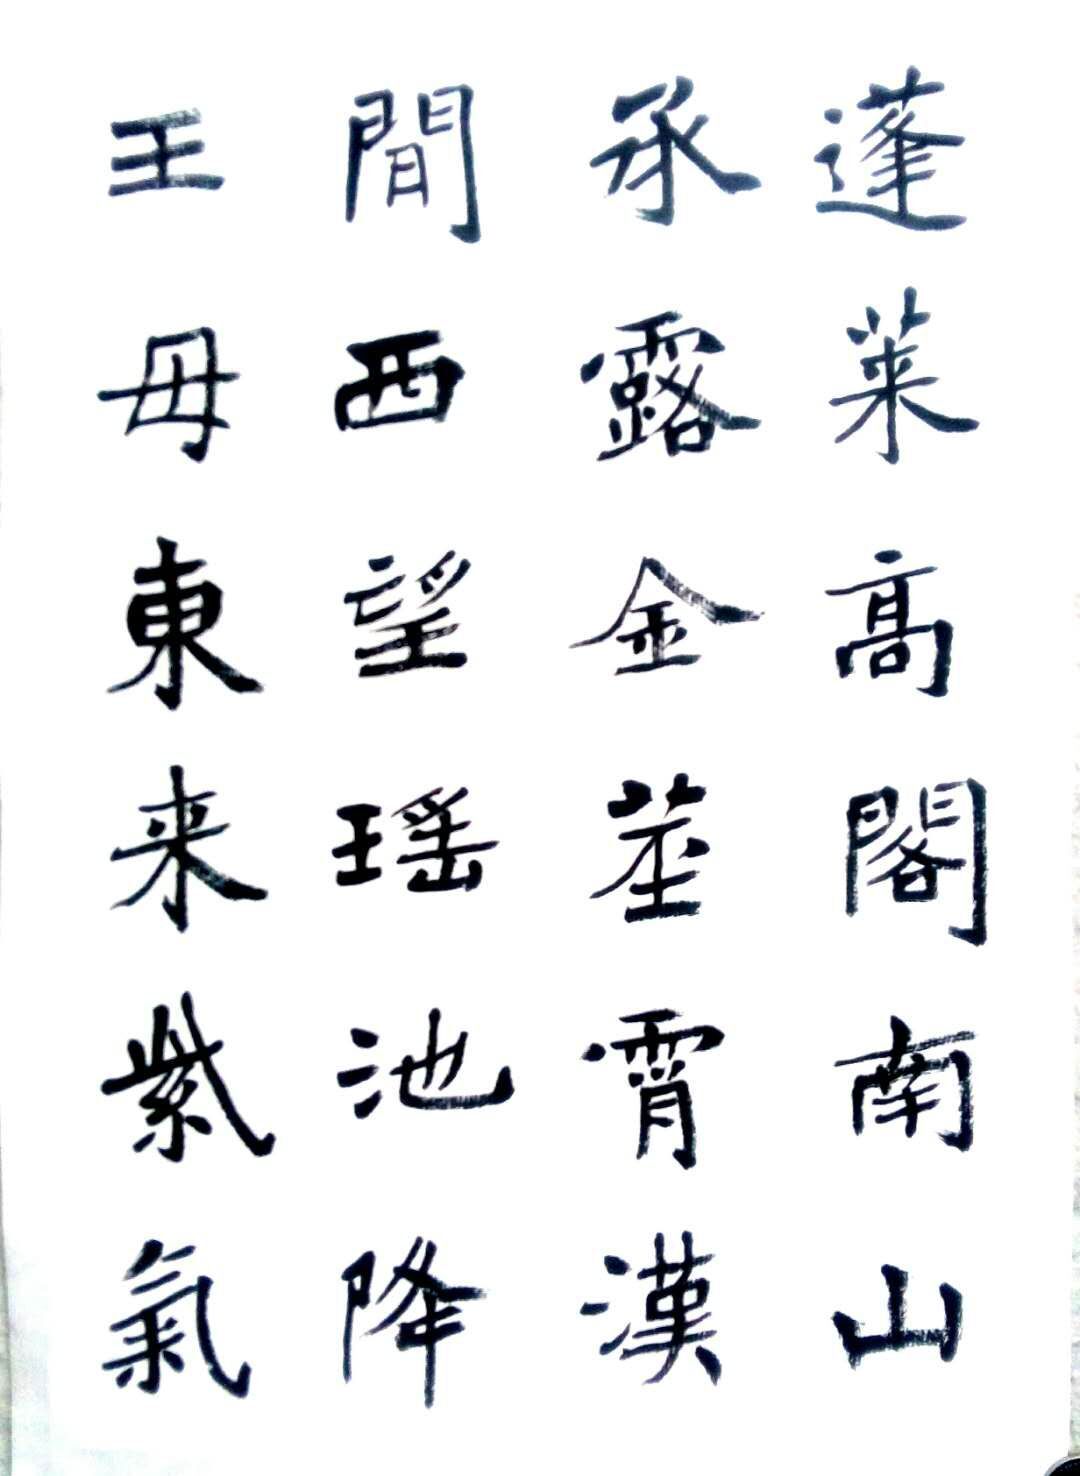 蓬莱高閣南山
承露金莖霄漢
間西望瑶池降
王母東来紫氣